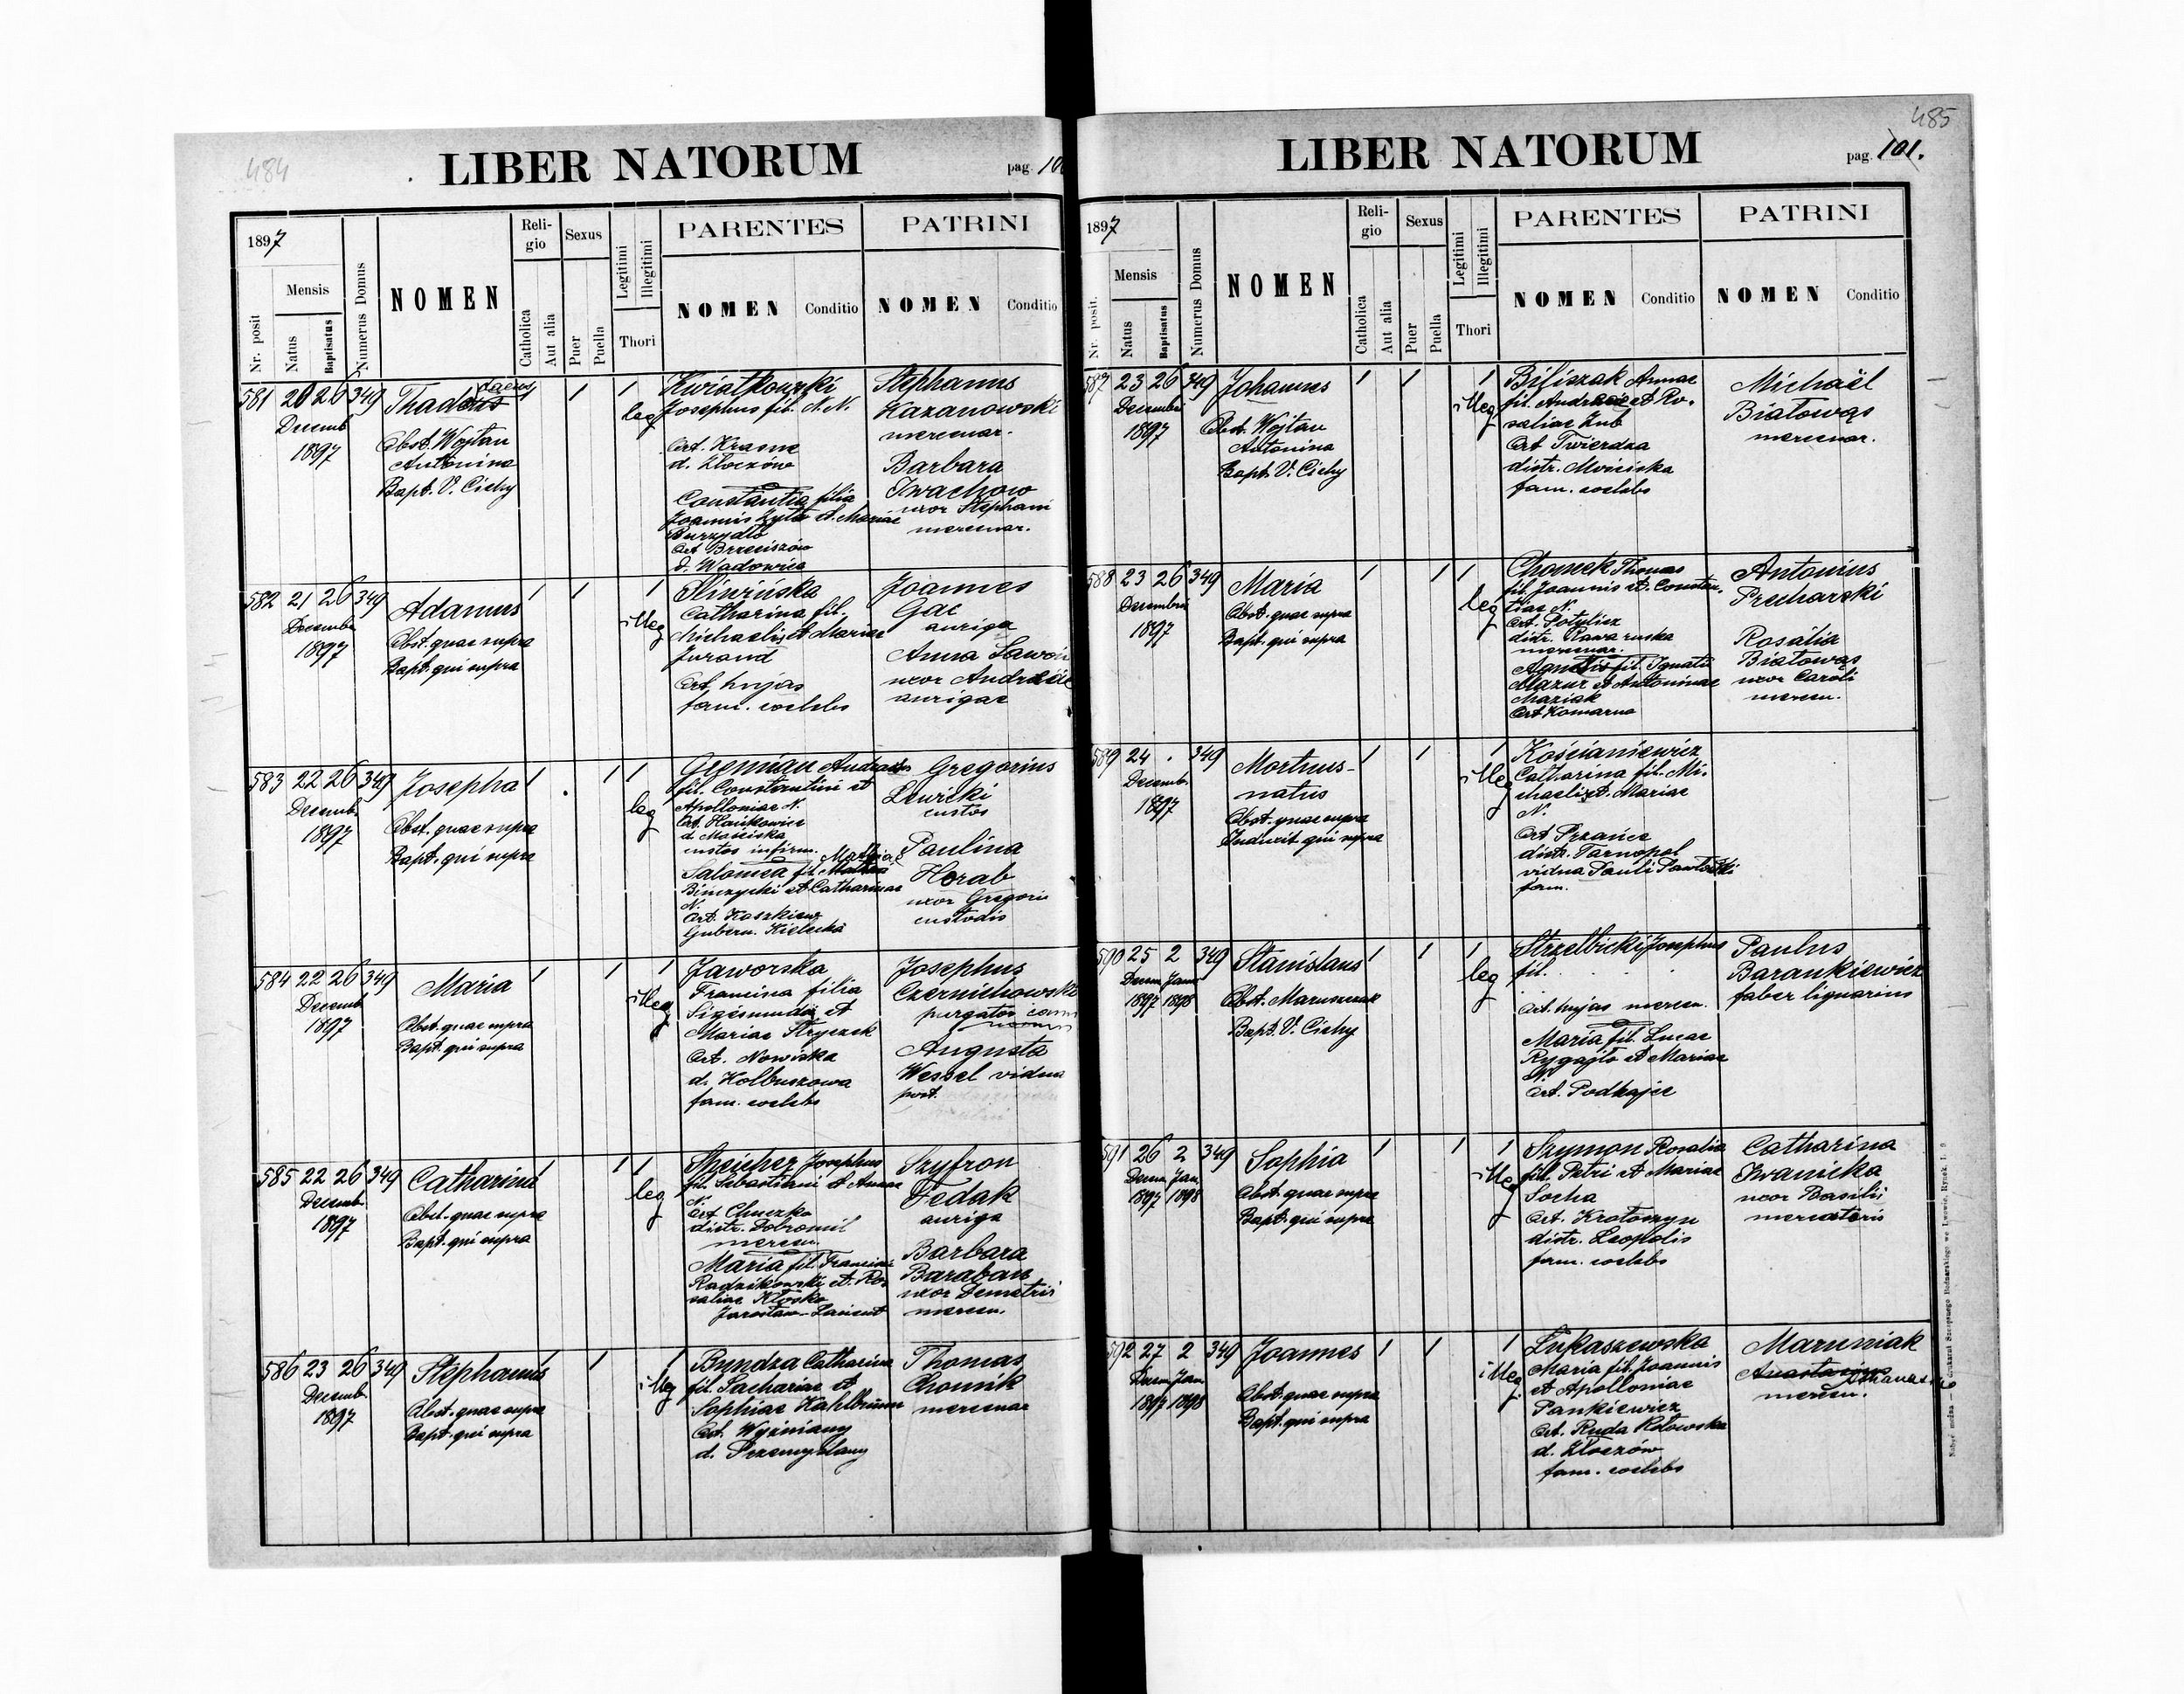 484
LIBER NATORUM
pag. 10
1897
Nr. posit
Mensis
Natus
Baptisatus
Numerus Domus
NOMEN
Reli-
gio
Catholica
Aut alia
Sexus
Puer
Puella
Legitimi
Illegitimi
Thori
PARENTES
NOMEN
Conditio
PATRINI
NOMEN
Conditio
581 20 26 349
Decemb
1897
Thad
daeus
Obst. Wojtan
Antonina
Bapt. V. Cichy
1 1 1
leg
Kwiatkowski
Josephus fil. N. N.
Ort. Krasne
d. Złoczów
Constantia filia
Joannis Zyta et Mariae
Burzydło
Ort Brzeiszów
d. Wadowica
Stephanus
Kazanowski
mercenar.
Barbara
Iwachow
uxor Stephani
mercenar.
582 21 26 349
Decembr
1897
Adamus
Obst. quae supra
Bapt. qui supra
1 1 1
illeg
Sliwińska
Catharina fil.
Michaelis et Mariae
Jurand
Ort. hujas
fam. coelebs
Joannes
Gac
auriga
Anna
uxor Andreae
aurigae
583 22 26 349
Decemb.
1897
Josepha
Obst. quae supra
Bapt. qui supra
1 1 1
leg
Andreas
fil. Constantini et
Apolloniae N.
Ort. Hańkowice
d. Mościska
custos infirm.
Salomea fil. Mathiae
Binczycki et Catharinae
N.
Ort.
Gubern. Kielecka
Gregorius
Lewicki
custos
Paulina
Horab
uxor Gregorii
custodis
584 22 26 349
Decemb
1897
Maria
Obst. quae supra
Bapt. qui supra
1 1 1
illeg
Jaworska
Francina filia
Sigismundi et
Mariae Stryczek
Ort. Nowiska
d. Kolbuszowa
fam. coelebs
Josephus
Czernichowski
purgator
Augusta
Wessel vidua
post.
585 22 26 349
Decemb.
1897
Catharina
Obst. quae supra
Bapt. qui supra
1 1 1
leg
Speicher Josephus
fil. Sebastiani et Annae
N.
Ort
distr. Dobromil
mercen.
Maria fil. Francisci
Radzikowski et Ro-
saliae Kłosko
Jarosław-Łańcut
Szyfron
Fedak
auriga
Barbara
Baraban
uxor Demetrii
mercen.
586 23 26 349
Decemb.
1897
Stephanus
Obst. quae supra
Bapt. qui supra
1 1
illeg
Byndza Catharina
fil. Zachariae et
Sophiae
Ort. Wyżniany
d. Przemyslany
Thomas
Chomik
mercenae
485
LIBER NATORUM
pag. 101.
1897
Nr. posit.
Mensis
Natus
Baptisatus
Numerus Domus
NOMEN
Reli-
gio
Catholica
Aut alia
Sexus
Puer
Puella
Legitimi
Illegitimi
Thori
PARENTES
NOMEN
Conditio
PATRINI
NOMEN
Conditio
587 23 26 349
Decembri
1897
Johannes
Obst. Wojtan
Antonina
Bapt. V. Cichy
1 1 1
illeg
Biliszak Annae
fil. Andreae et Ro-
saliae Zub
Ort Twierdza
distr. Mościska
fam. coelebs
Michaël
Białowąs
mercenar.
588 23 26 349
Decembris
1897
Maria
Obst. quae supra
Bapt. qui supra
1 1 1
leg
Chomek Thomas
fil. Joannis et Constan-
tiae N.
Ort. Potylicz
distr. Rawa ruska
mercenar.
fil. Ignatii
Mazur et Antoninae
Maziak
Ort Komarno
Antonius
Rosalia
Białowąs
uxor Caroli
mercen.
589 24 . 349
Decemb.
1897
Mortuus-
natus
Obst. quae supra
Induxit qui supra
1 1 1
illeg
Kościaniewicz
Catharina fil. Mi-
chaelis et Mariae
N.
Ort
distr. Tarnopol
vidua Pauli
fam.
590 25 2 349
Decem. Januar
1897 1898
Stanislaus
Obst. Maruszczak
Bapt. V. Cichy
1 1 1
leg
Strzelbicki Josephus
fil. . . .
Ort. hujas mercen.
Maria fil. Lucae
Rygajło et Mariae
N.
Ort. Podhajce
Paulus
Barankiewicz
faber lignarius
591 26 2 349
Decem. Jan.
1897 1898
Sophia
Obst. quae supra
Bapt. qui supra
1 1 1
illeg
Szymon Rosalia
fil. Petri et Mariae
Socha
Ort. Krotoszyn
distr. Leopolis
fam. coelebs
Catharina
Iwanicka
uxor Basilii
mercatoris
592 27 2 349
Decem. Jan.
1897 1898
Joannes
Obst. quae supra
Bapt. qui supra
1 1 1
illeg.
Łukaszewska
Maria fil. Joannis
et Apolloniae
Pankiewicz
Ort. Ruda Kołowska
d. Złoczów
fam. coelebs
Maruniak
mercen.